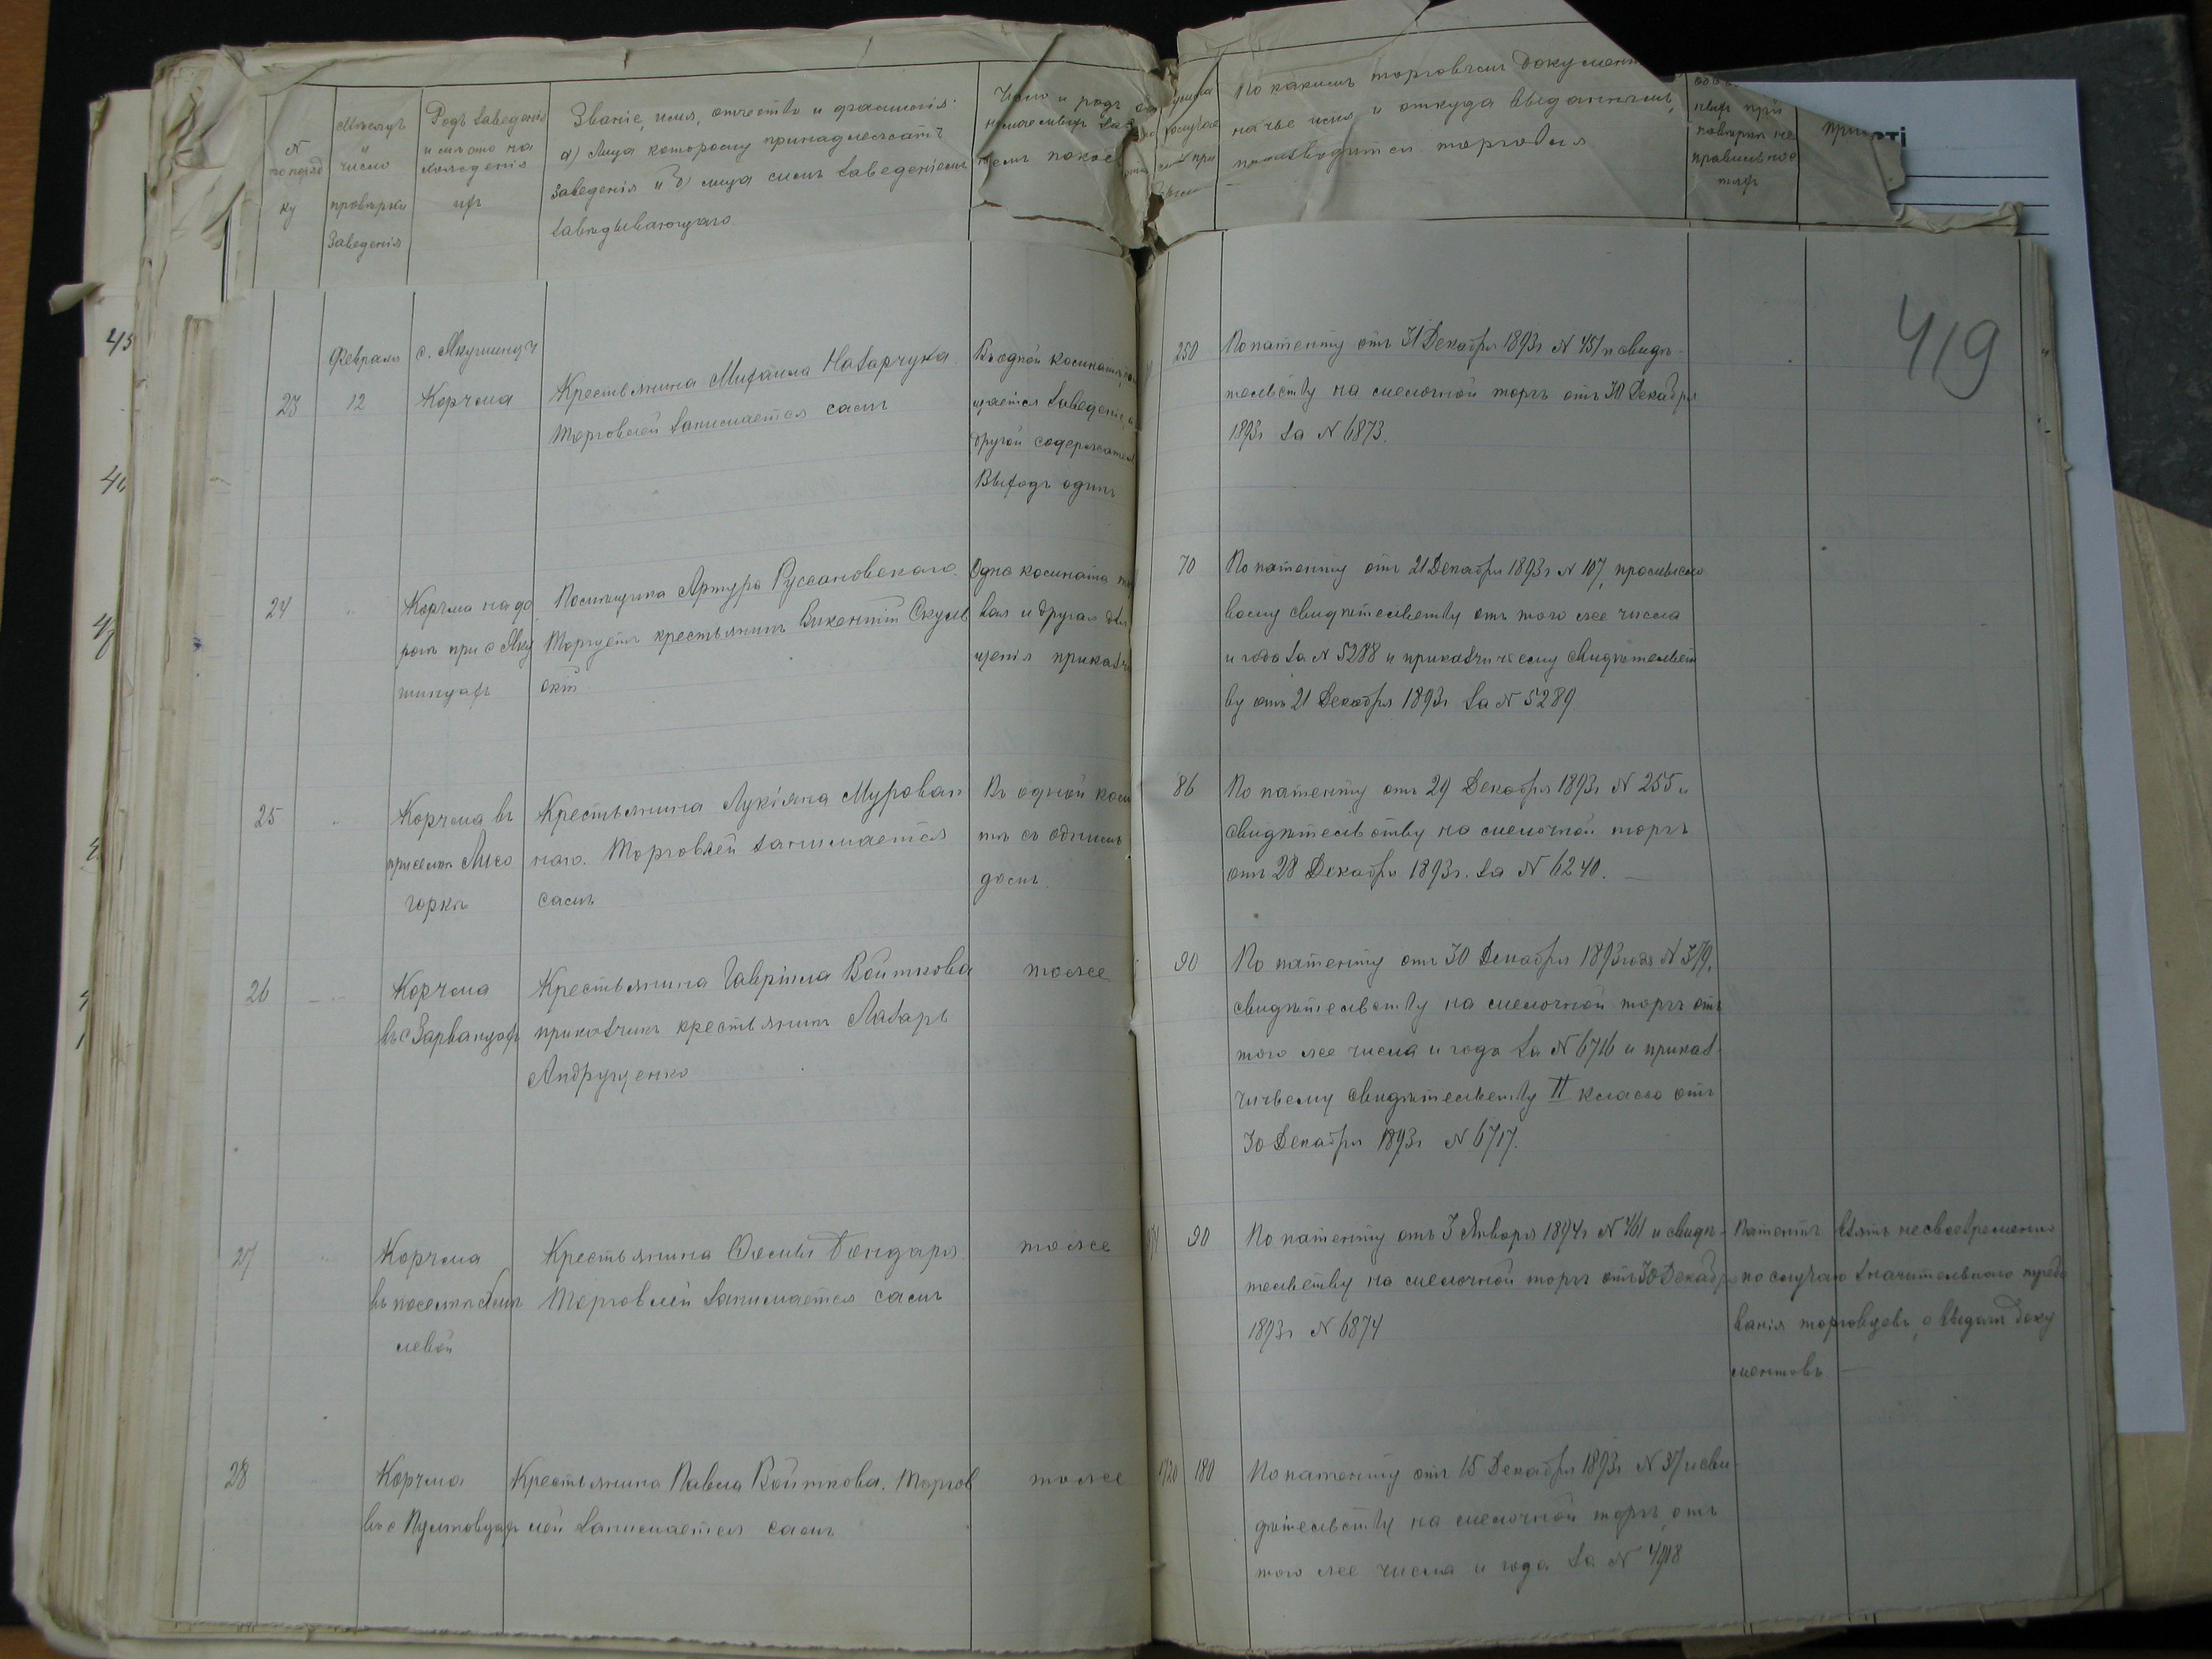 №
по поряд
ку
Мѣсяцъ
и
число
провѣрки
Заведенія
Родъ заведенія
и мѣсто на
хожденія
ихъ
Званіе, имя, отчество и фамилія:
а) Лица которому принадлежатъ
Заведенія и б) лица симъ заведеніемъ
завѣдывающаго.
Число и родъ
покое
По какимъ торговымъ документ
на чье имя и откуда выданнымъ,
производится торговля
при
повѣркѣ не
правильнос
тяхъ
419
23
Февраля
12
с. Якушинцы
Корчма
Крестьянина Михаила Назарчука.
Торговлей занимается самъ
Въ одной комнатѣ
щается заведеніе, а
другой содержател
Выходъ одинъ
250
По патенту отъ 31 Декабря 1893г № 451 и свидѣ-
тельству на мелочной торгъ отъ 30 Декабря
1893г за № 6873.
24
Корчма на до
рогѣ при с Яку
шинцахъ
Помѣщика Артура Руссановскаго.
Торгуетъ крестьянинъ Викентій Скуль
скій
Одна комната
вая и другая
щенія приказч
70
По патенту отъ 21 Декабря 1893г № 107, промысло
вому свидѣтельству отъ того же числа
и года за № 5288 и приказчичьему свидѣтельст
ву отъ 21 Декабря 1893г за № 5289
25
Корчма въ
приселкѣ Лысо
горкѣ
Крестьянина Лукіяна Мурован
наго. Торговлей занимается
самъ
Въ одной комна
тѣ съ однимъ
86
По патенту отъ 29 Декабря 1893г № 255 и
свидѣтельству на мелочной торгъ
отъ 28 Декабря 1893г. за № 6240. —
26
Корчма
въ с Зарванцахъ
Крестьянина Гавріила Войткова
приказчикъ крестьянинъ Лазарь
Андрущенко
тоже
90
По патенту отъ 30 Декабря 1893 года № 379,
свидѣтельству на мелочной торгъ отъ
того же числа и года за № 6716 и приказ-
чичьему свидѣтельству II класса отъ
30 Декабря 1893г № 6717.
27
Корчма
въ поселкѣ
Крестьянина Бондаря
Торговлей занимается самъ
тоже
90
По патенту отъ 3 Января 1894г № 461 и свидѣ-
тельству на мелочной торгъ отъ 30 Декабр
1893г № 6874
Патентъ взятъ несвоевременно
по случаю значительнаго требо
ванія торговцевъ, о выдачѣ доку
ментовъ —
28
Корчма
въ с Пултовцахъ
Крестьянина Павла Войткова. Торгов
лей занимается самъ
тоже
180
По патенту отъ 15 Декабря 1893г № 37 и сви-
дѣтельству на мелочной торгъ, отъ
того же числа и года за № 4918